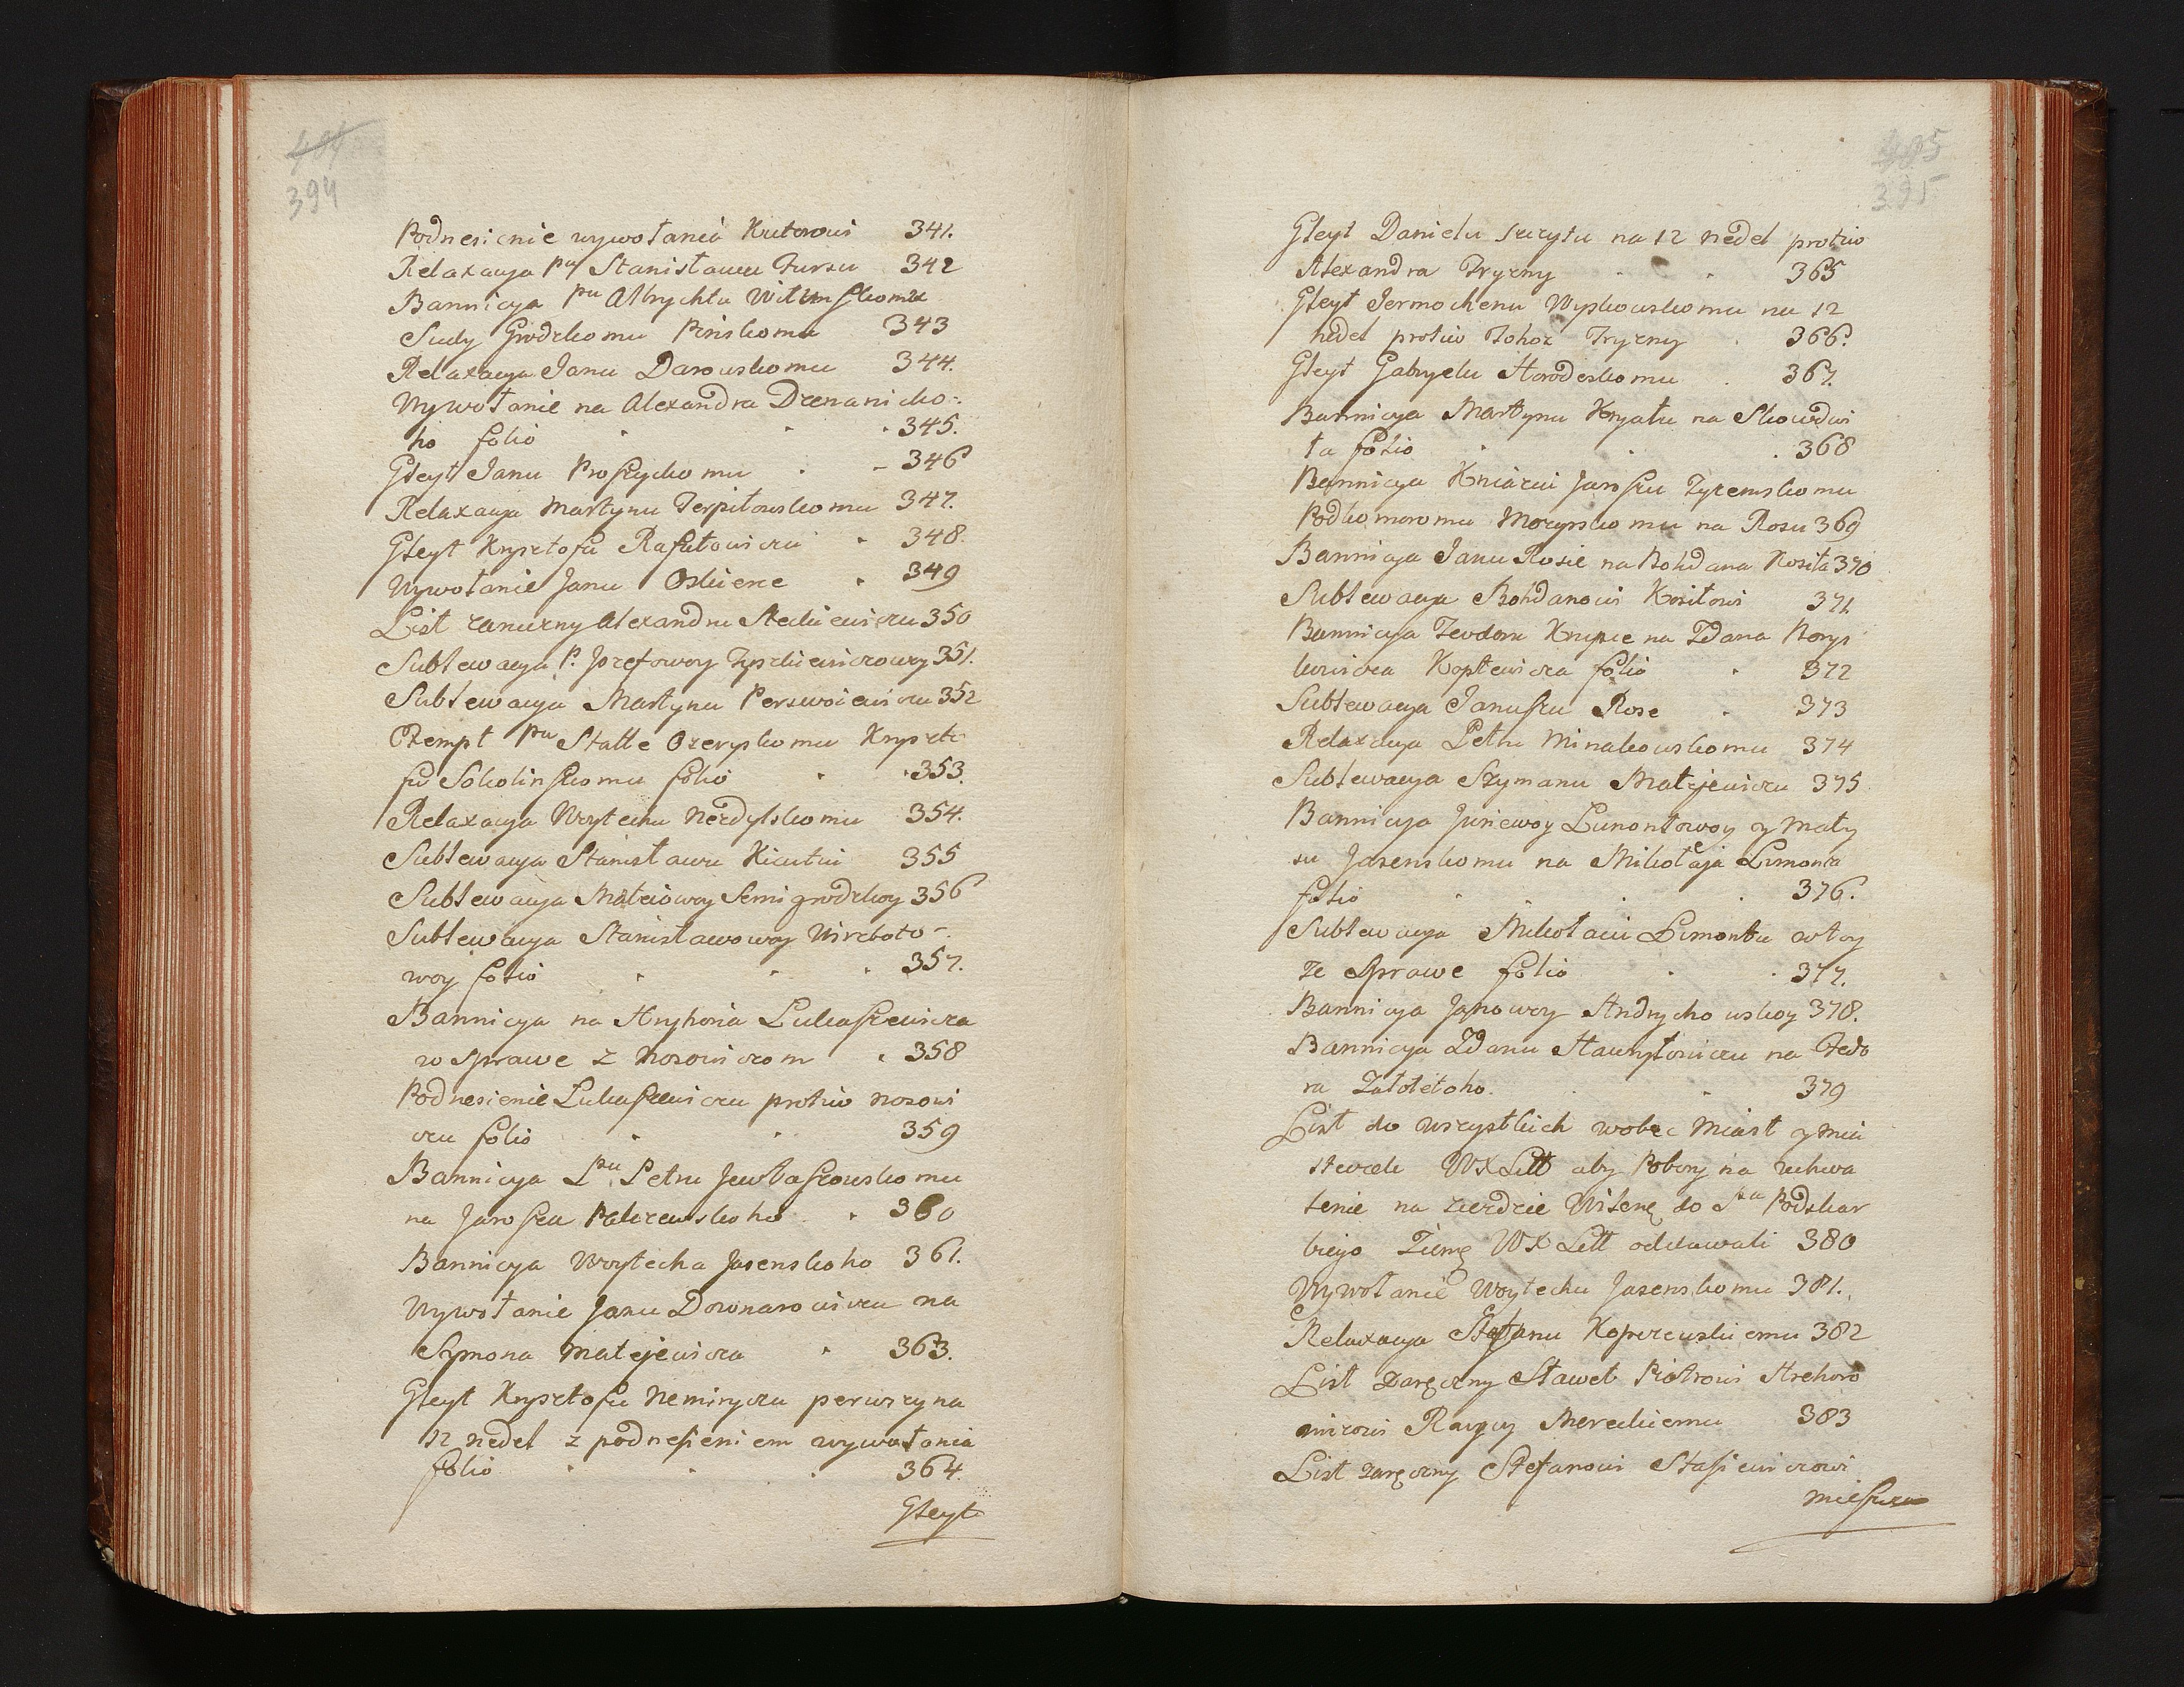 404
394
Podnesienie wywołania Kutowi 341.
Relaxacya Pu Stanisławu Fursu 342
Bannicya Pu Albrychtu Wilunskomu
Sudy Grodzkomu Pinskomu 343
Relaxacya Janu Darowskomu 344.
Wywołanie na Alexandra Drenanicko-
ho folio 345.
Gleyt Janu Proszyckomu 346
Relaxacya Martynu Terpiłowskomu 347.
Gleyt Krysztofu Rafałowiczu 348.
Wywołanie Janu Oskierce 349
List zaruczny Alexandru Steckiewiczu 350
Sublewacya P. Jozefowoy Tyszkiewiczowoy 351.
Sublewacya Martynu Perswoiewiczu 352
Exempt Pu Statte Ozeryskomu Kryszto
fu Sokolinskomu folio 353.
Relaxacya Woytechu Nerdylskomu 354.
Sublewacya Stanisławu Kicutui 355
Sublewacya Mateiowoy Semigrodzkoy 356
Sublewacya Stanisławowoy Wireboto-
woy folio 357.
Bannicya na Hryhoria Łukaszewicza
w sprawe z Nosowiczom 358
Podnesienie Łukaszewiczu protiw Nosowi
czu folio 359
Bannicya Pu Petru Jewłaszowskomu
na Jarosza Palczewskoho 360
Bannicya Woytecha Jasenskoho 361.
Wywołanie Janu Downarowiczu na
Szymona Matejewicza 363.
Gleyt Krysztofu Nemiryczu perwszy na
12 nedel z podnesieniem wywołania
folio 364.
Gleyt
405
395
Gleyt Danielu Szczytu na 12 nedel protiw
Alexandra Tryzny 365
Gleyt Jermochenu Wyskowskomu na 12
nedel protiw Tohoz Tryzny 366.
Gleyt Gabryelu Horodeskomu 367.
Bannicya Martynu Kryatu na Skowdwi
ła folio 368
Bannicya Kniaziu Jaroszu Zyzemskomu
Podkomoromu Mozyrskomu na Rosu 369
Bannicya Janu Rosie na Bohdana Kosiła 370
Sublewacya Bohdanowi Kosiłowi 371.
Bannicya Teodoru Krupie na Zdana Borys
kowicza Koptewicza folio 372
Sublewacya Januszu Rose 373
Relaxacya Petru Minakowskomu 374
Sublewacya Szymanu Matejewiczu 375
Bannicya Juriewoy Limontowoy y Maty
su Jasenskomu na Mikołaja Limonta
folio 376.
Sublewacya Mikołaiu Limontu w toy
ze Sprawe folio 377.
Bannicya Janowoy Andrychowskoy 378.
Bannicya Zdanu Hawryłowiczu na Fedo
ra Zołotoho 379
List do wszystkich wobec Miast y mia
steczek WXLitt aby Pobory na uchwa
lenie na zjezdzie Wilenę do Sku Podskar
biego Ziemę WX Litt oddawali 380
Wywołanie Woytechu Jasenskomu 381.
Relaxacya Stefanu Koperewskiemu 382
List zaręczny Sławet Piotrowi Hrehoro
wiczowi Raycy Mereckiemu 383
List zaręczny Stefanowi Stasiewiczowi
mieszcza